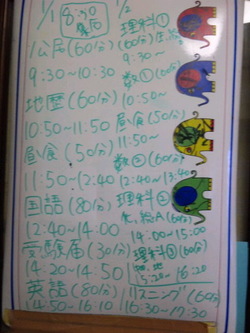 1/1
8:50
集合
公民(60分)
9:30~10:30
地歴(60分)
10:50~11:50
昼食(50分)
11:50~12:40
国語(80分)
12:40~14:00
受験届(30分)
14:20~14:50
英語(80分)
14:50~16:10
1/2
理科①
(60分)
9:30~
数①(60分)
10:50~
昼食(50分)
11:50~
数②(60分)
12:40~13:40
理科②
(60分)
14:00~15:00
理科③(60分)
15:20~16:20
リスニング(60分)
16:30~17:30